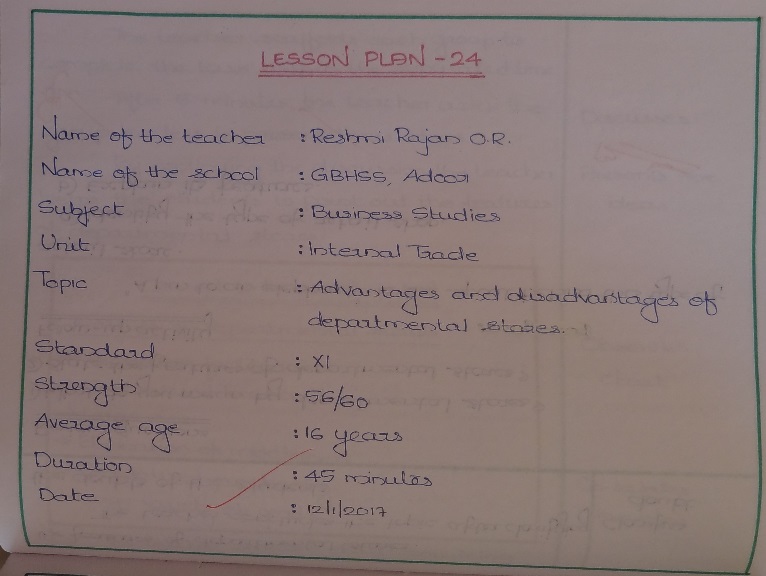 LESSON PLAN - 24
Name of the teacher : Reshmi Rajan O.R.
Name of the school : GBHSS, Adoor
Subject : Business Studies
Unit : Internal Trade
Topic : Advantages and disadvantages of
departmental stores.
Standard : XI
Strength : 56/60
Average age : 16 years
Duration : 45 minutes
Date : 12/1/2017